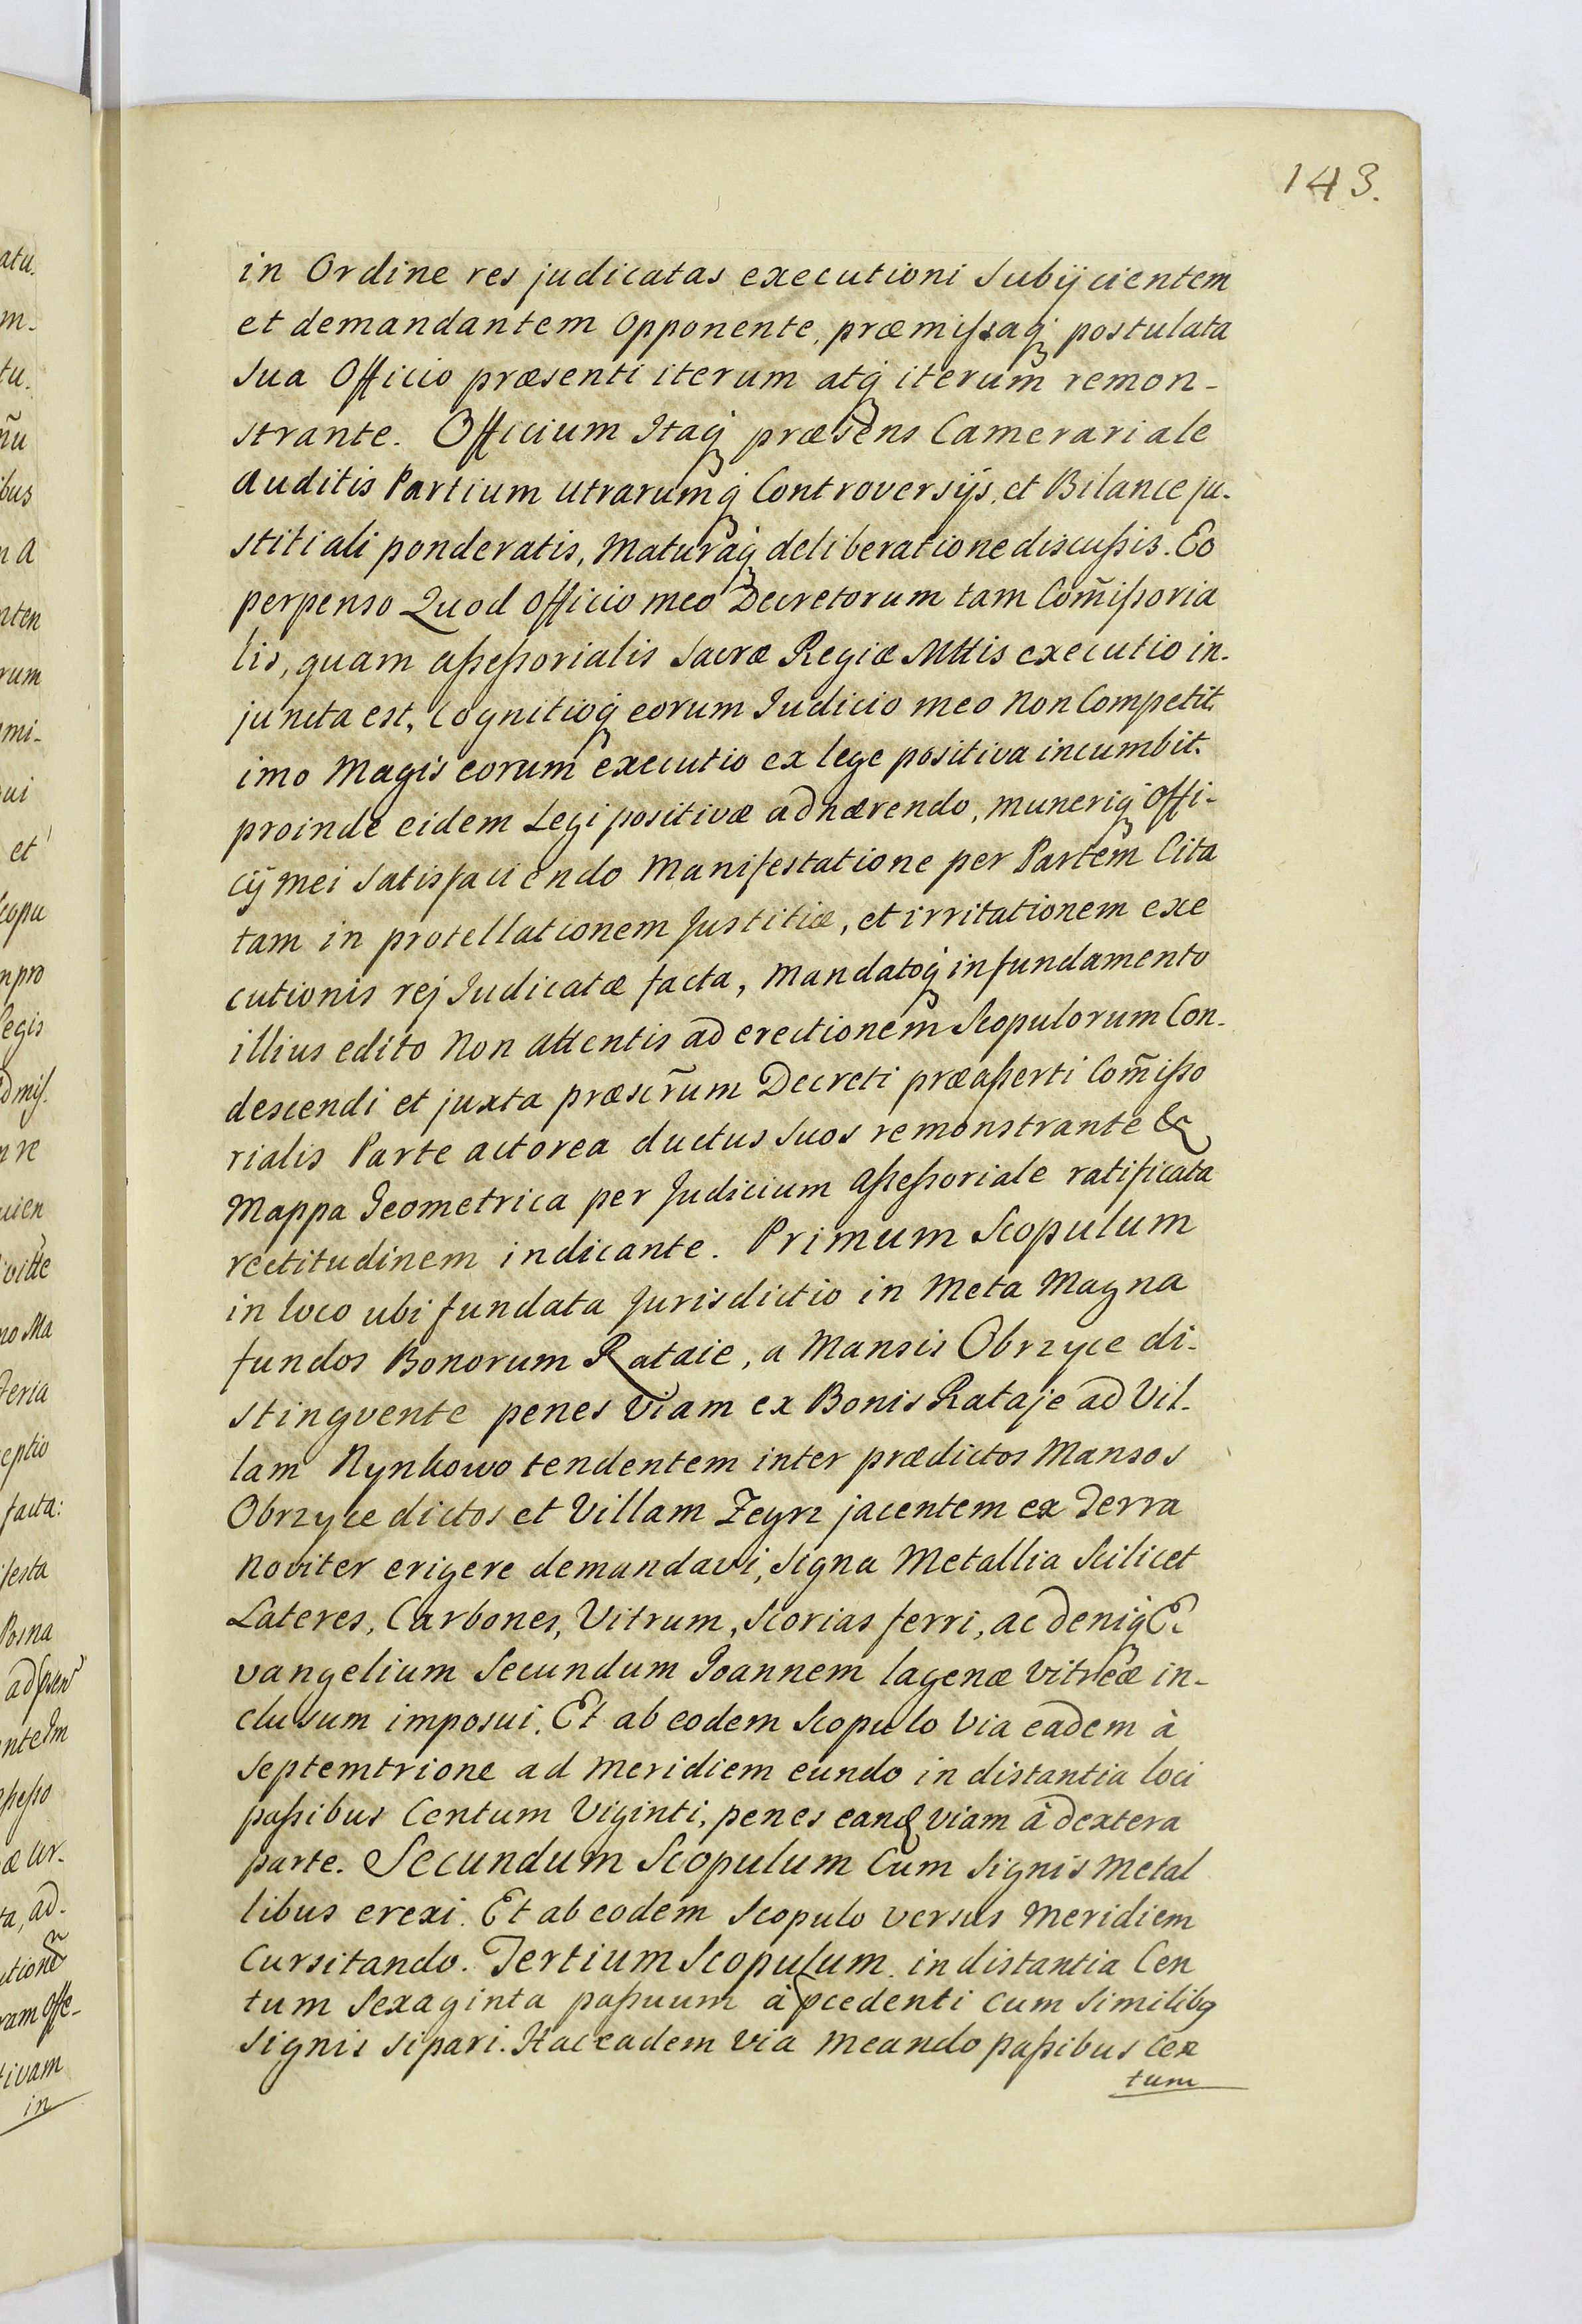 143.
in Ordine res judicatas executioni Subijcientem
et demandantem Opponente, præmissaq̃ postulata
Sua Officio præsenti iterum atq̃ iterum remon-
strante. Officium Itaq̃ præsens Camerariale
auditis Partium utrarumq̃ Controversijs, et Bilance ju-
stitiali ponderatis, Maturaq̃ deliberatione discussis. Eo
perpenso Quod Officio meo Decretorum tam Com̃issoria
lis, quam assessorialis Sacræ Regiæ Mttis executio in-
juncta est, Cognitioq̃ eorum Iudicio meo Non Competit,
imo Magis eorum executio ex lege positiva incumbit.
proinde eidem Legi positivæ adhærendo, muneriq̃ Offi-
cij mei Satisfaciendo Manifestatione per Partem Cita
tam in protellationem Justitiæ, et irritationem exe
cutionis rej Iudicatæ facta, Mandatoq̃ in fundamento
illius edito Non attentis ad erectionem Scopulorum Con-
descendi et juxta præscr̃um Decreti præasserti Com̃isso
rialis Parte actorea ductus Suos remonstrante &
Mappa Geometrica per Judicium Assessoriale ratificata
rectitudinem indicante. Primum Scopulum
in loco ubi fundata Jurisdictio in Meta Magna
fundos Bonorum Rataie, a Mansis Obrzyce di-
stingvente penes Viam ex Bonis Rataje ad Vil-
lam Nynkowo tendentem inter prædictos Mansos
Obrzyce dictos et Villam Zegrz jacentem ex Terra
Noviter erigere demandavi, Signa Metallia Scilicet
Lateres, Carbones, Vitrum, Scorias ferri, ac deniq̃ E
vangelium Secundum Joannem lagenæ Vitreæ in-
clusum imposui. Et ab eodem Scopulo Via eadem à
Septemtrione ad Meridiem eundo in distantia loci
passibus Centum Viginti, penes eand viam à dextera
parte. Secundum Scopulum Cum Signis Metal
libus erexi. Et ab eodem Scopulo versus Meridiem
Cursitando. Tertium Scopulum. in distantia Cen
tum Sexaginta passuum à pcedenti cum Similibq
Signis sipari. Hac eadem via Meando passibus Cen
tum